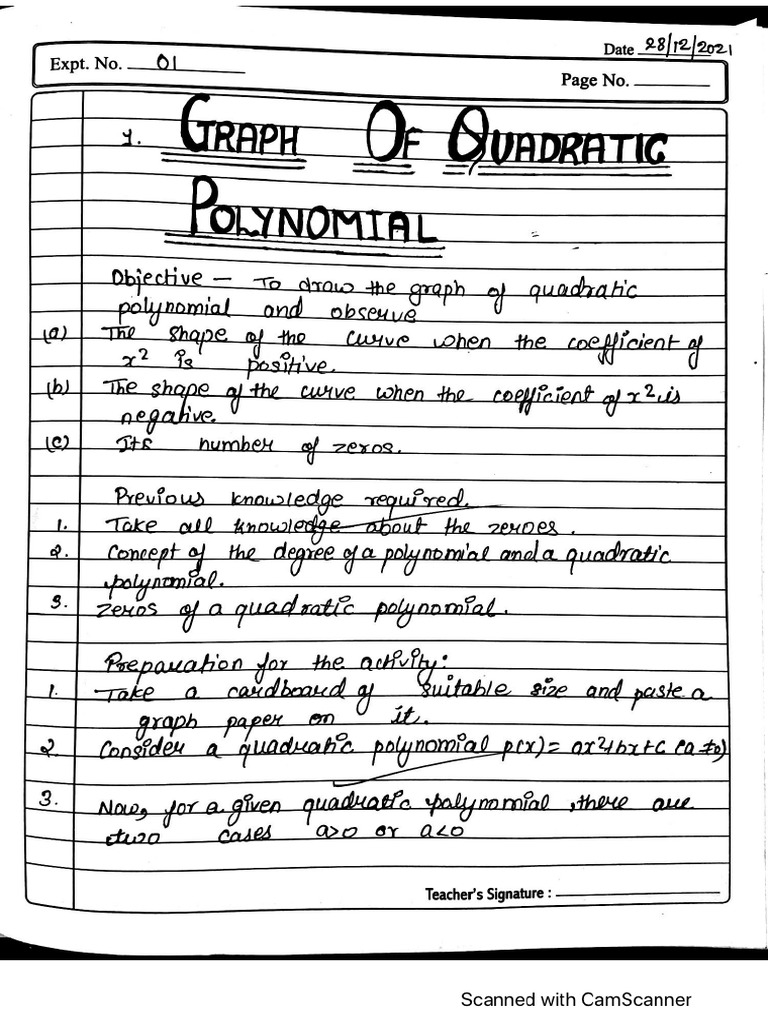 Date 28/12/2021
Expt. No. 01
Page No.
1. GRAPH OF QUADRATIC
POLYNOMIAL
Objective - To draw the graph of quadratic
polynomial and observe
(a) The shape of the curve when the coefficient of
x² is positive.
(b) The shape of the curve when the coefficient of x² is
negative.
(c) Its number of zeros.
Previous knowledge required.
1. Take all knowledge about the zeroes.
2. Concept of the degree of a polynomial and a quadratic
polynomial.
3. Zeros of a quadratic polynomial.
Preparation for the activity:
1. Take a cardboard of suitable size and paste a
graph paper on it.
2. Consider a quadratic polynomial p(x) = ax²+bx+c (a≠0)
3. Now, for a given quadratic polynomial, there are
two cases a>0 or a<0
Teacher's Signature :
Scanned with CamScanner